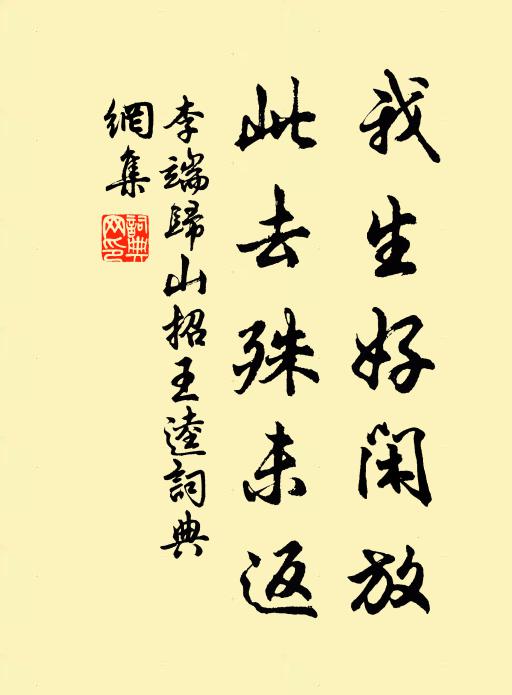 我生好闲放
此去殊未返
李端歸山招王逵詞典
網集
詞典网印